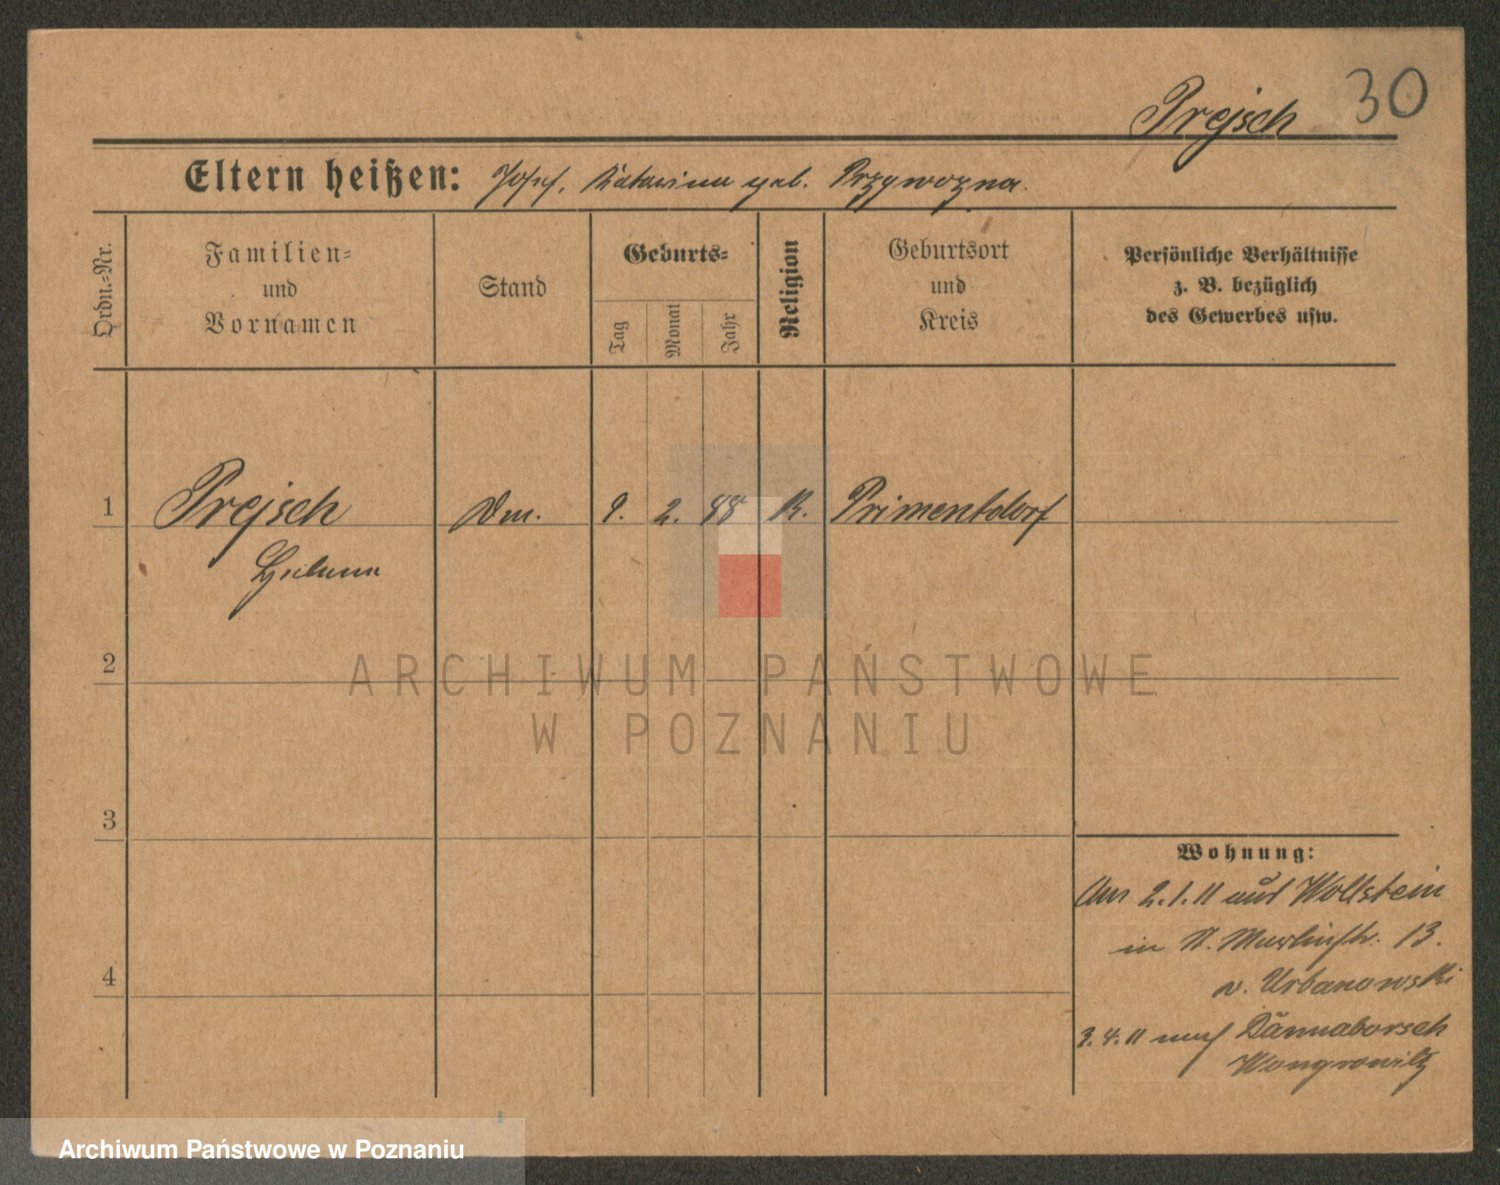 Prejsch 30
Eltern heißen: Josef, Katarina geb. Przywozna.
Ordn.-Nr.
Familien-
und
Vornamen
Stand
Geburts-
Tag
Monat
Jahr
Religion
Geburtsort
und
Kreis
Persönliche Verhältnisse
z. B. bezüglich
des Gewerbes usw.
1 Prejsch 9. 2. 88 K. Primentdorf
2
3
4
Wohnung:
Am 2.1.11 aus Wollstein
in 13.
v. Urbanowski
3.4.11 nach
Wongrowitz
ARCHIWUM PAŃSTWOWE
W POZNANIU
Archiwum Państwowe w Poznaniu